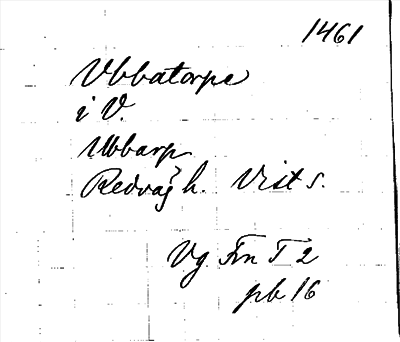 1461
Vbbatorpe
i V.
Ubbarp
Redvägh. Vist s.
Vg Frn T 2
pb 16